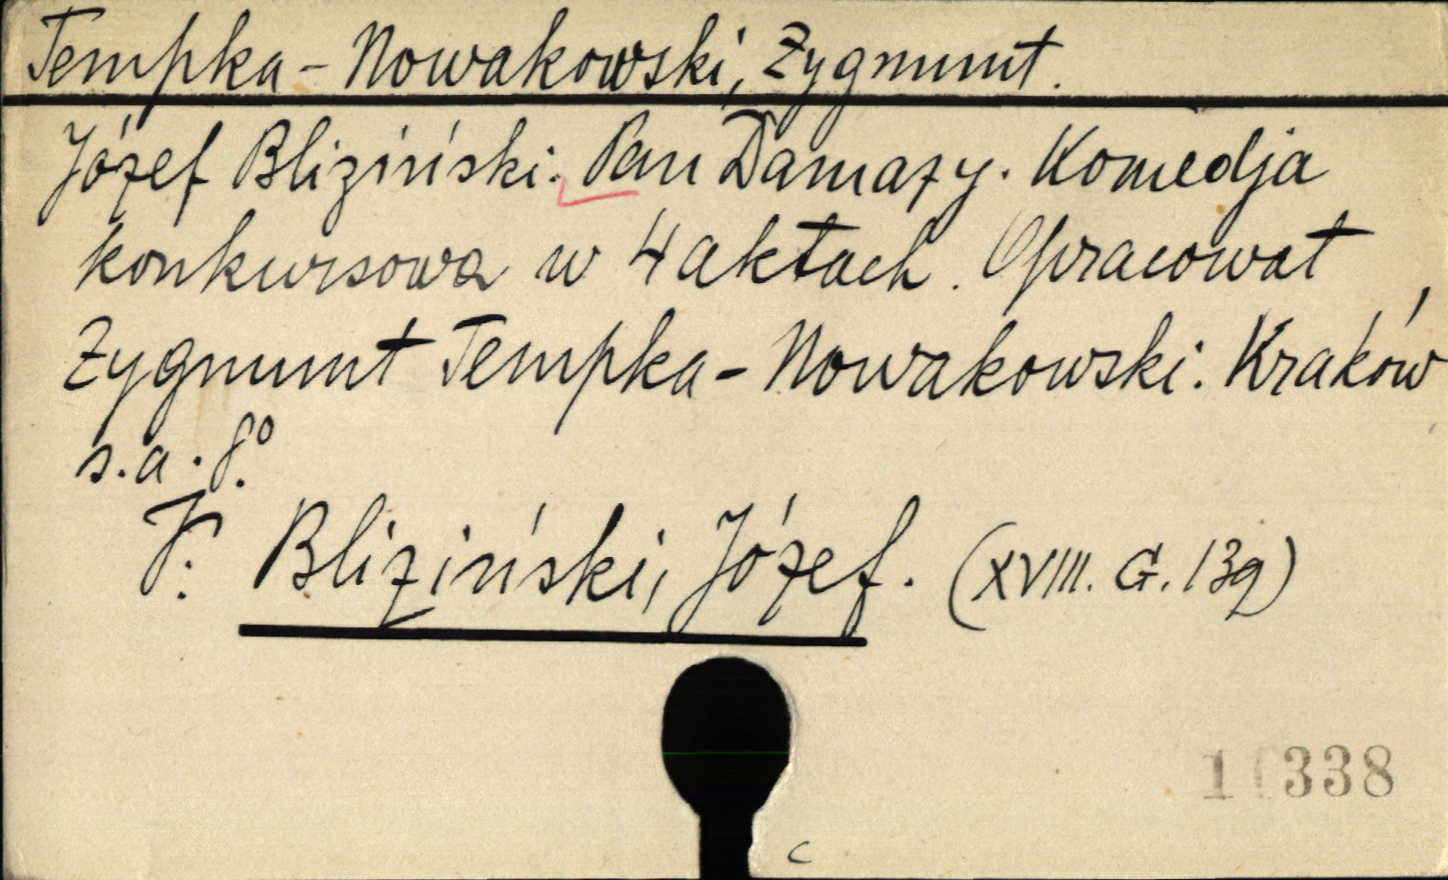 Tempka-Nowakowski, Zygmunt.
Józef Bliziński: Pan Damazy. Komedja
konkursowa w 4 aktach. Opracował
Zygmunt Tempka-Nowakowski. Kraków,
s.a. 8°.
V: Bliziński, Józef. (XVIII. G. 139)
338
c